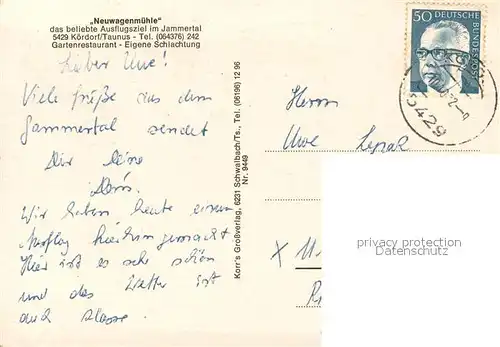 „Neuwagenmühle"
das beliebte Ausflugsziel im Jammertal
5429 Kördorf/Taunus - Tel. (064376) 242
Gartenrestaurant - Eigene Schlachtung
Lieber Uwe!
Viele Grüße aus dem
Jammertal sendet
Dir Deine
Wir haben heute einen
Ausflug hierhin gemacht
Hier ist es sehr schön
und das Wetter ist
auch klasse.
Korr's Großverlag, 6231 Schwalbach/Ts., Tel. (06196) 12 96
Nr. 9449
50 DEUTSCHE
BUNDESPOST
5429
Herrn
Uwe
privacy protection
Mr. Card Delcampe